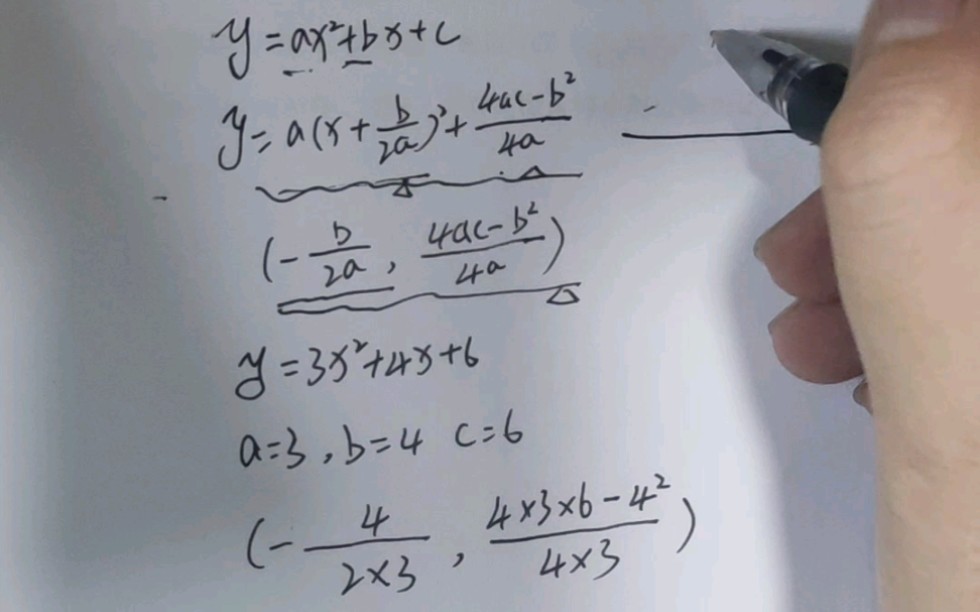 y=ax²+bx+c
y=a(x+b/2a)²+(4ac-b²)/4a
(-b/2a, (4ac-b²)/4a)
y=3x²+4x+6
a=3,b=4 c=6
(-4/(2×3), (4×3×6-4²)/(4×3))